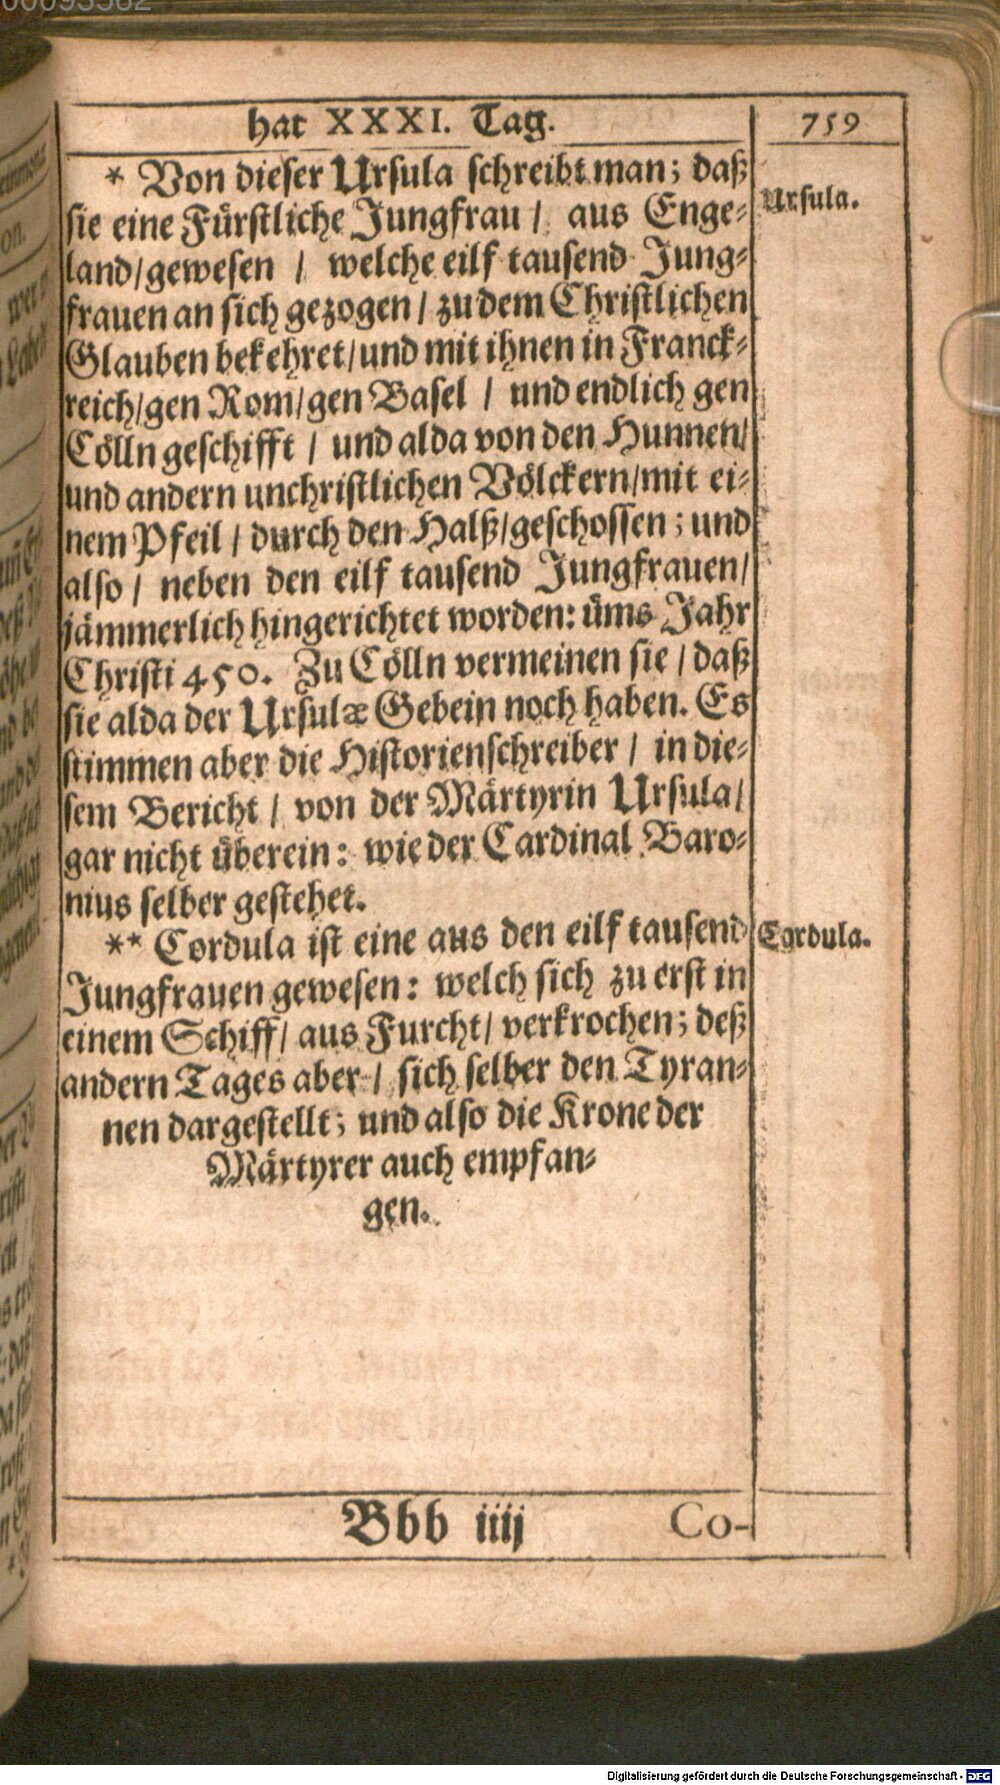 hat XXXI. Tag.
759
* Von dieser Ursula schreibt man; daß
Ursula.
sie eine Fürstliche Jungfrau / aus Enge-
land/gewesen / welche eilf tausend Jung-
frauen an sich gezogen / zu dem Christlichen
Glauben bekehret/und mit ihnen in Franck-
reich/gen Rom/gen Basel / und endlich gen
Cölln geschifft / und alda von den Hunnen/
und andern unchristlichen Völckern/mit ei-
nem Pfeil / durch den Halß/geschossen; und
also / neben den eilf tausend Jungfrauen/
jämmerlich hingerichtet worden: üms Jahr
Christi 450. Zu Cölln vermeinen sie / daß
sie alda der Ursulæ Gebein noch haben. Es
stimmen aber die Historienschreiber / in die-
sem Bericht / von der Märtyrin Ursula/
gar nicht überein: wie der Cardinal Baro-
nius selber gestehet.
** Cordula ist eine aus den eilf tausend
Cordula.
Jungfrauen gewesen: welch sich zu erst in
einem Schiff/ aus Furcht/ verkrochen; deß
andern Tages aber / sich selber den Tyran-
nen dargestellt; und also die Krone der
Märtyrer auch empfan-
gen.
Bbb iiij
Co-
Digitalisierung gefördert durch die Deutsche Forschungsgemeinschaft - DFG